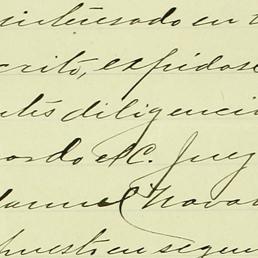 interesado en
crito, expidase
diligenci
ordo el C. Juez
Manuel Navar
puesto en segun